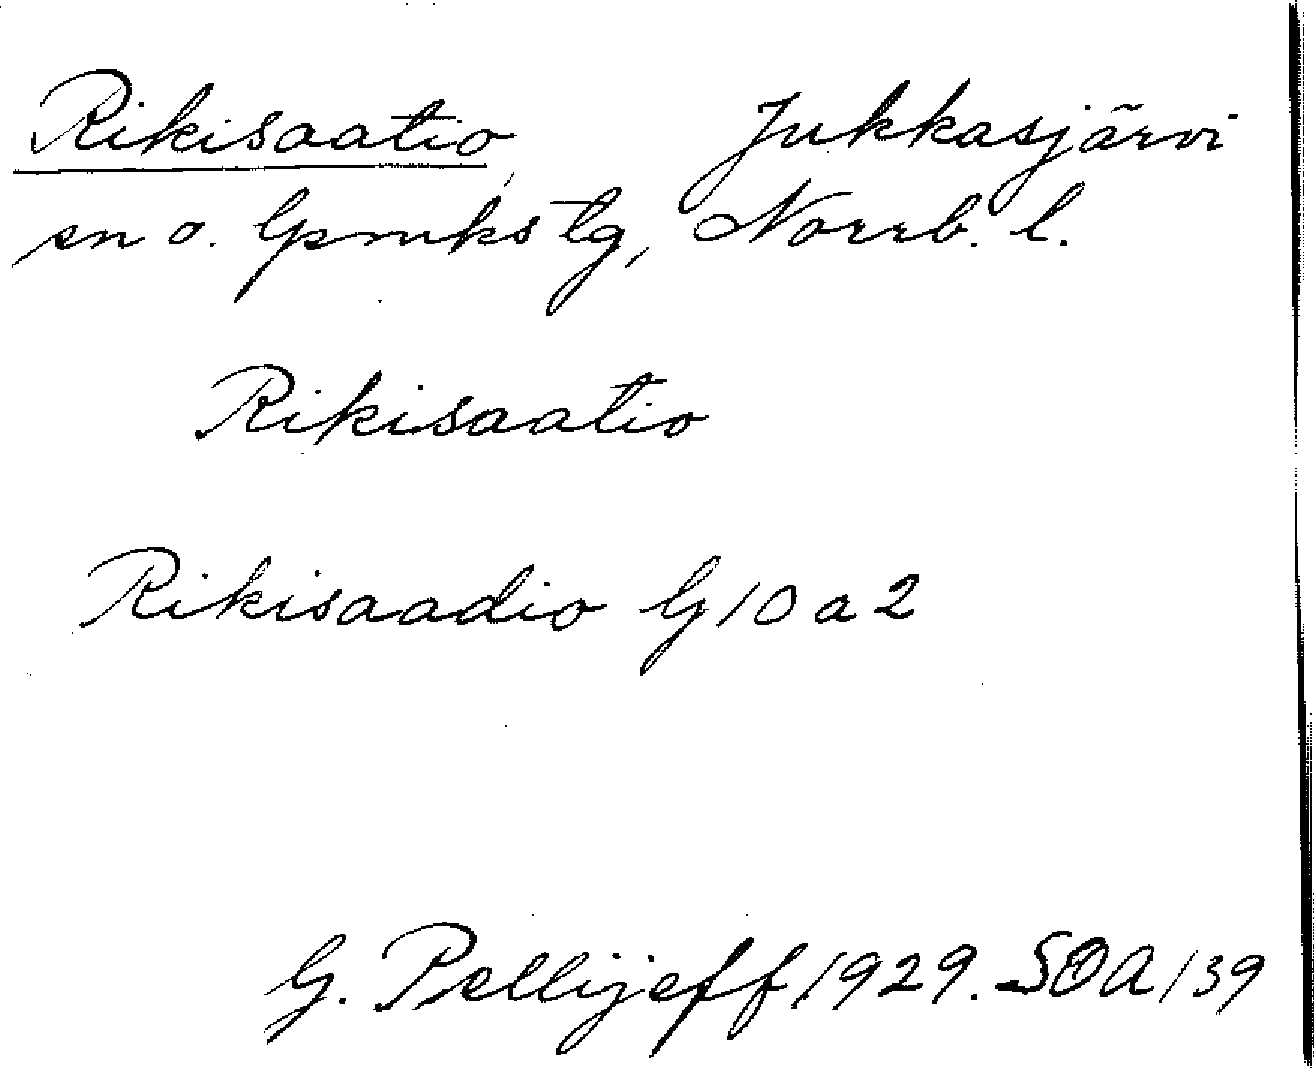 Rikisaatio, Jukkasjärvi
sn o. lpmkstg, Norrb. l.
Rikisaatio
Rikisaadio G 10 a 2
G. Pellijeff 1929. SOA 139